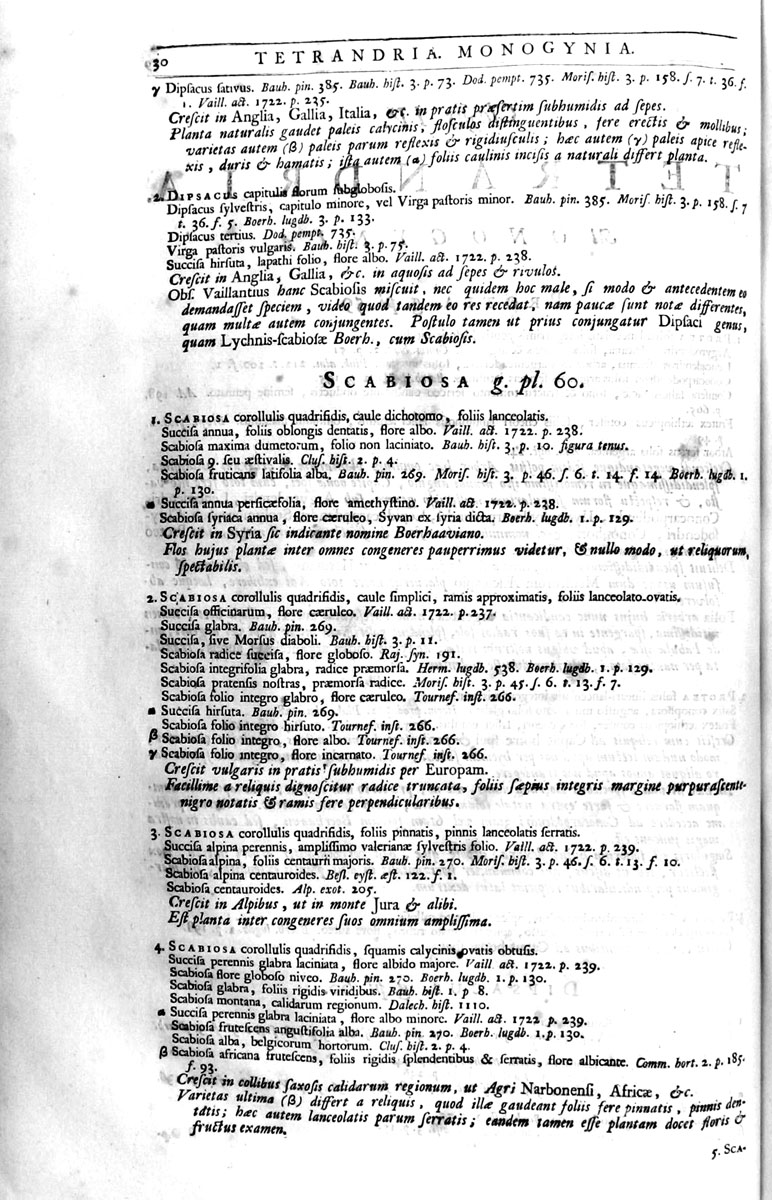 30 TETRANDRIA. MONOGYNIA.
γ Dipsacus sativus. Bauh. pin. 385. Bauh. hist. 3. p. 73. Dod. pempt. 735. Moris. hist. 3. p. 158. s. 7. t. 36. f.
1. Vaill. act. 1722. p. 235.
Crescit in Anglia, Gallia, Italia, &c. in pratis præsertim subhumidis ad sepes.
Planta naturalis gaudet paleis calycinis, flosculos distinguentibus, fere erectis & mollibus;
varietas autem (β) paleis parum reflexis & rigidiusculis; hæc autem (γ) paleis apice refle-
xis, duris & hamatis; ista autem (α) foliis caulinis incisis a naturali differt planta.
2. DIPSACUS capitulis florum subglobosis.
Dipsacus sylvestris, capitulo minore, vel Virga pastoris minor. Bauh. pin. 385. Moris. hist. 3. p. 158. s. 7
t. 36. f. 5. Boerh. lugdb. 3. p. 133.
Dipsacus tertius. Dod. pempt. 735.
Virga pastoris vulgaris. Bauh. hist. 3. p. 75.
Succisa hirsuta, lapathi folio, flore albo. Vaill. act. 1722. p. 238.
Crescit in Anglia, Gallia, &c. in aquosis ad sepes & rivulos.
Obs. Vaillantius hanc Scabiosis miscuit, nec quidem hoc male, si modo & antecedentem eo
demandasset speciem, video quod tandem eo res recedat, nam paucæ sunt notæ differentes,
quam multæ autem conjungentes. Postulo tamen ut prius conjungatur Dipsaci genus,
quam Lychnis-scabiosæ Boerh., cum Scabiosis.
SCABIOSA g. pl. 60.
1. SCABIOSA corollulis quadrifidis, caule dichotomo, foliis lanceolatis.
Succisa annua, foliis oblongis dentatis, flore albo. Vaill. act. 1722. p. 238.
Scabiosa maxima dumetorum, folio non laciniato. Bauh. hist. 3. p. 10. figura tenus.
Scabiosa 9. seu æstivalis. Clus. hist. 2. p. 4.
Scabiosa fruticans latifolia alba. Bauh. pin. 269. Moris. hist. 3. p. 46. s. 6. t. 14. f. 14. Boerh. lugdb. 1.
p. 130.
α Succisa annua persicæfolia, flore amethystino. Vaill. act. 1722. p. 238.
Scabiosa syriaca annua, flore cæruleo, Syvan ex syria dicta. Boerh. lugdb. 1. p. 129.
Crescit in Syria sic indicante nomine Boerhaaviano.
Flos hujus plantæ inter omnes congeneres pauperrimus videtur, & nullo modo, ut reliquorum,
spectabilis.
2. SCABIOSA corollulis quadrifidis, caule simplici, ramis approximatis, foliis lanceolato-ovatis.
Succisa officinarum, flore cæruleo. Vaill. act. 1722. p. 237.
Succisa glabra. Bauh. pin. 269.
Succisa, sive Morsus diaboli. Bauh. hist. 3. p. 11.
Scabiosa radice succisa, flore globoso. Raj. syn. 191.
Scabiosa integrifolia glabra, radice præmorsa. Herm. lugdb. 538. Boerh. lugdb. 1. p. 129.
Scabiosa pratensis nostras, præmorsa radice. Moris. hist. 3. p. 45. s. 6. t. 13. f. 7.
Scabiosa folio integro glabro, flore cæruleo. Tournef. inst. 266.
α Succisa hirsuta. Bauh. pin. 269.
Scabiosa folio integro hirsuto. Tournef. inst. 266.
β Scabiosa folio integro, flore albo. Tournef. inst. 266.
γ Scabiosa folio integro, flore incarnato. Tournef. inst. 266.
Crescit vulgaris in pratis subhumidis per Europam.
Facillime a reliquis dignoscitur radice truncata, foliis sæpius integris margine purpurascente-
nigro notatis & ramis fere perpendicularibus.
3. SCABIOSA corollulis quadrifidis, foliis pinnatis, pinnis lanceolatis serratis.
Succisa alpina perennis, amplissimo valerianæ sylvestris folio. Vaill. act. 1722. p. 239.
Scabiosa alpina, foliis centaurii majoris. Bauh. pin. 270. Moris. hist. 3. p. 46. s. 6. t. 13. f. 10.
Scabiosa alpina centauroides. Besl. eyst. æst. 122. f. 1.
Scabiosa centauroides. Alp. exot. 205.
Crescit in Alpibus, ut in monte Jura & alibi.
Est planta inter congeneres suos omnium amplissima.
4. SCABIOSA corollulis quadrifidis, squamis calycinis ovatis obtusis.
Succisa perennis glabra laciniata, flore albido majore. Vaill. act. 1722. p. 239.
Scabiosa flore globoso niveo. Bauh. pin. 270. Boerh. lugdb. 1. p. 130.
Scabiosa glabra, foliis rigidis viridibus. Bauh. hist. 1. p 8.
Scabiosa montana, calidarum regionum. Dalech. hist. 1110.
α Succisa perennis glabra laciniata, flore albo minore. Vaill. act. 1722 p. 239.
Scabiosa frutescens angustifolia alba. Bauh. pin. 270. Boerh. lugdb. 1. p. 130.
Scabiosa alba, belgicorum hortorum. Clus. hist. 2. p. 4.
β Scabiosa africana frutescens, foliis rigidis splendentibus & serratis, flore albicante. Comm. hort. 2. p. 185.
f. 93.
Crescit in collibus saxosis calidarum regionum, ut Agri Narbonensi, Africæ, &c.
Varietas ultima (β) differt a reliquis, quod illæ gaudeant foliis fere pinnatis, pinnis den-
tatis; hæc autem lanceolatis parum serratis; eandem tamen esse plantam docet floris &
fructus examen.
5. SCA-